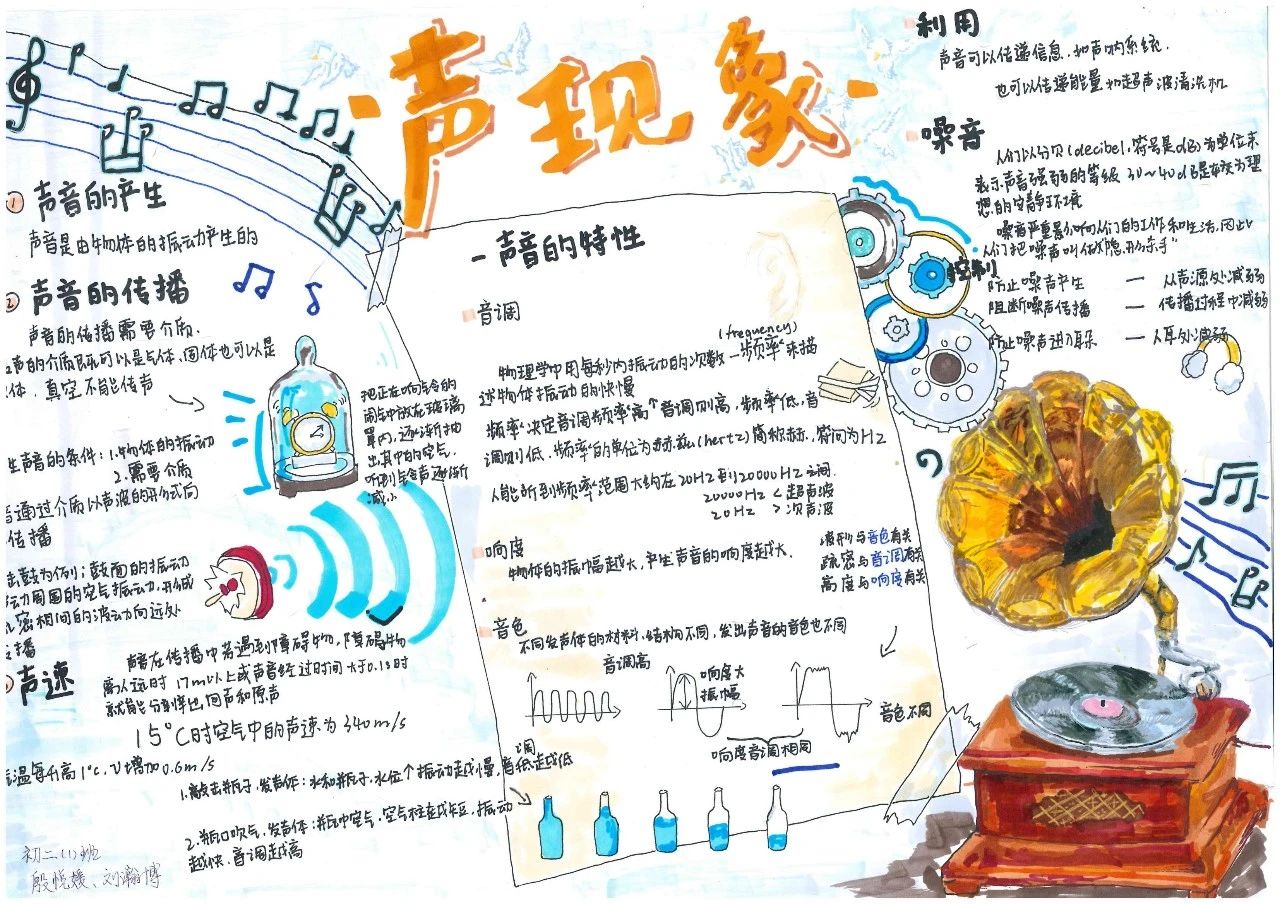 声现象
① 声音的产生
声音是由物体的振动产生的
② 声音的传播
声音的传播需要介质.
声的介质既可以是气体、固体也可以是
体. 真空不能传声
把正在响铃的
闹钟放在玻璃
罩内,逐渐抽
出其中的空气.
听到铃声逐渐
减小
生声音的条件:1.物体的振动
2.需要介质
通过介质以声波的形式向
传播
击鼓为例:鼓面的振动
动周围的空气振动,形成
密相间的波动向远处
播
声速
声音在传播中若遇到障碍物,障碍物
离人远时 17m以上或声音经过时间大于0.1s时
就能分辨出回声和原声
15°C时空气中的声速为340m/s
温每升高1°C, V增加0.6m/s
1.敲击瓶子,发声体:水和瓶子.水位个振动越慢,音调低越低
2.瓶口吹气,发声体:瓶中空气,空气柱变短,振动
越快.音调越高
初二(1)班
殷悦媛、刘瀚博
一声音的特性
音调
(frequency)
物理学中用每秒内振动的次数—步频率来描
述物体振动的快慢
频率决定音调频率高音调则高,频率低,音
调则低.频率的单位为赫兹(hertz)简称赫,符间为HZ
人能听到频率范围大约在20HZ到20000HZ之间.
20000HZ < 超声波
20HZ > 次声波
响度
物体的振幅越大,产生声音的响度越大.
波形与音色有关
疏密与音调有关
高度与响度有关
音色
不同发声体的材料,结构不同,发出声音的音色也不同
音调高
响度大
振幅
音色不同
响度音调相同
利用
声音可以传递信息.如声呐系统.
也可以传递能量如超声波清洗机
噪音
人们以分贝(decibel,符号是dB)为单位来
表示声音强弱的等级 30~40dB是较为理
想的安静环境
噪声严重影响人们的工作和生活.因此
人们把噪声叫做"隐形杀手"
控制
防止噪声产生 — 从声源处减弱
阻断噪声传播 — 传播过程中减弱
防止噪声进入耳朵 — 人耳处减弱